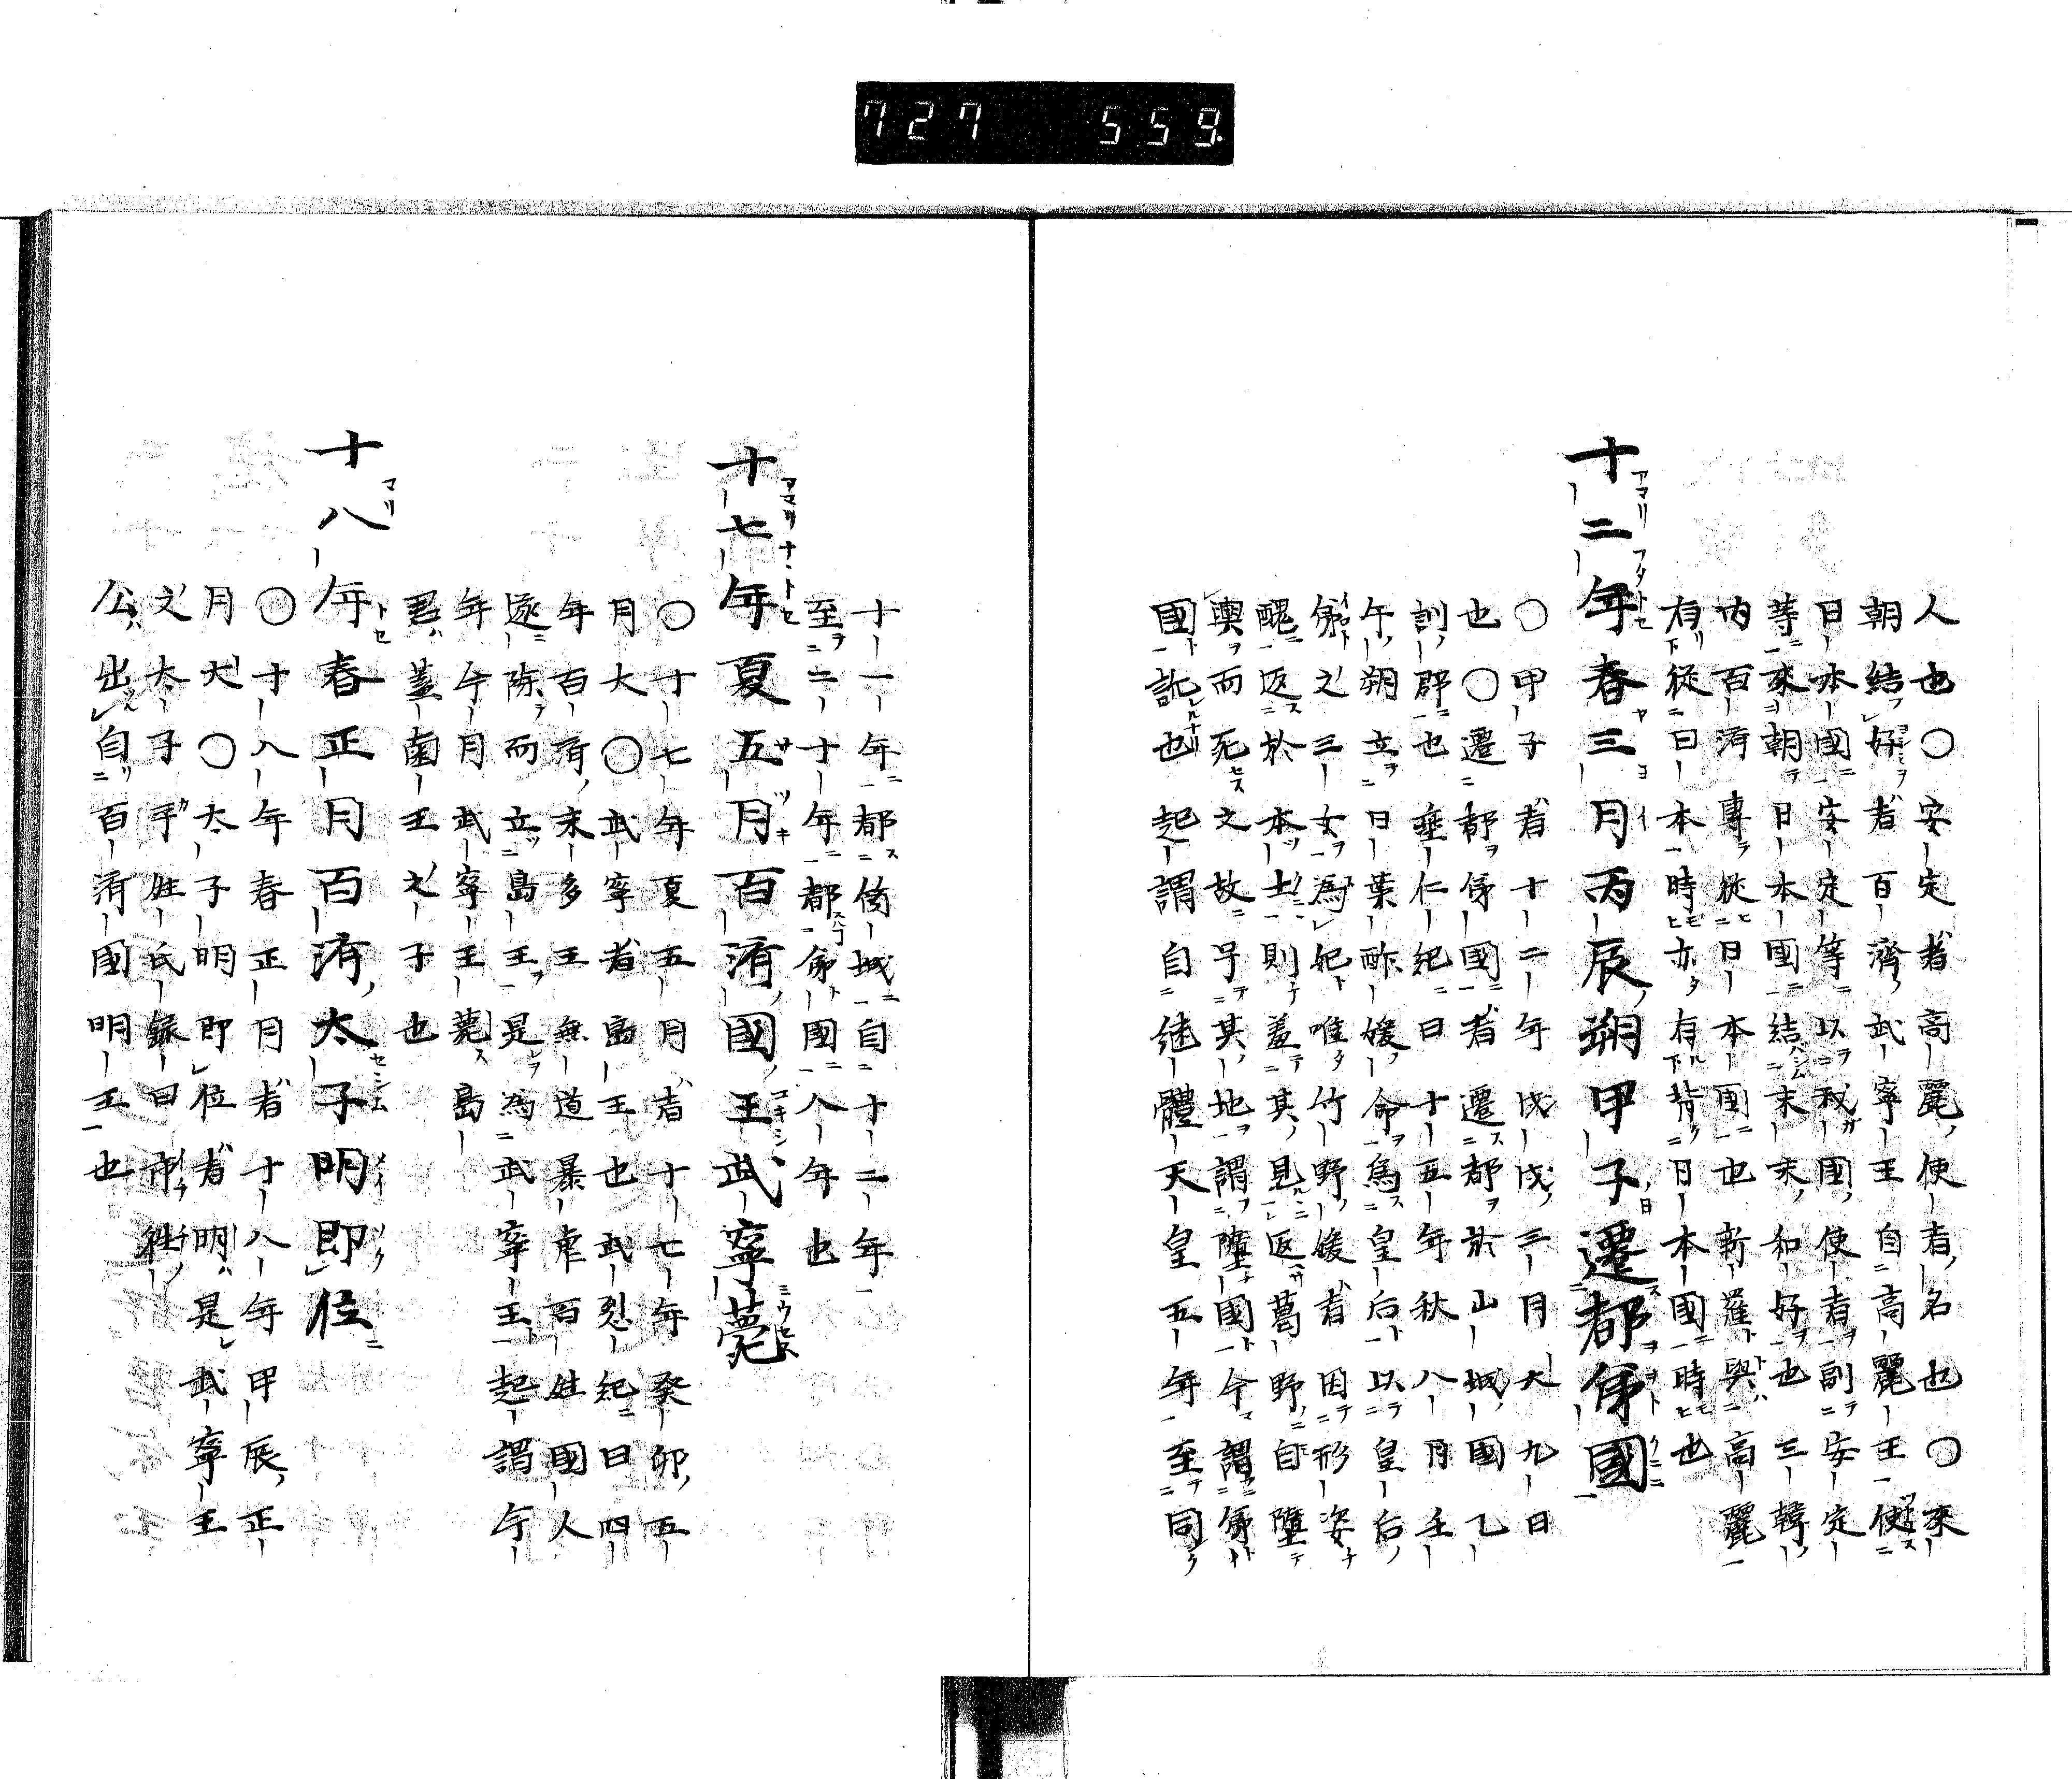 727 559
人也〇安定者高麗使者名也〇來
朝結好者百濟武寧王自高麗王使
日本國安定等以我國使者副安定
等來朝日本國結末來和好也三韓
內百濟專從日本國也新羅與高麗
有從日本時亦有背日本國時也
十二年春三月丙辰朔甲子遷都弟國
〇甲子者十二年戊戌三月大九日
也〇遷都弟國者遷都於山城國乙
訓郡也垂仁紀曰十五年秋八月壬
午朔立日葉酢媛命為皇后以皇后
弟之三女為妃唯竹野媛者因形姿
醜返於本土則羞其見返葛野自墮
輿而死之故号其地謂墮國今謂弟
國訛也起謂自継體天皇五年至同
十一年都筒城自十二年
至二十年都弟國八年也
十七年夏五月百濟國王武寧薨
〇十七年夏五月者十七年癸卯五
月大〇武寧者島王也武烈紀曰四
年百濟末多王無道暴虐百姓國人
遂除而立島王是為武寧王起謂今
年今月武寧王薨島
君蓋鹵王之子也
十八年春正月百濟太子明即位
〇十八年春正月者十八年甲辰正
月大〇太子明即位者明是武寧王
之太子乎姓氏録曰市往
公出自百濟國明王也